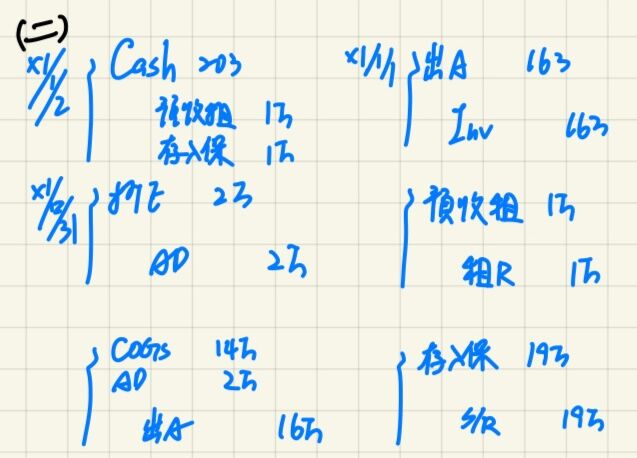 (二)
X1/1/2 Cash 20万
X1/1/1 出A 16万
预收租 1万
存入保 1万
Inv 16万
X1/12/31 折E 2万
預收租 1万
AD 2万
租R 1万
COGS 14万
存入保 19万
AD 2万
出A 16万
S/R 19万